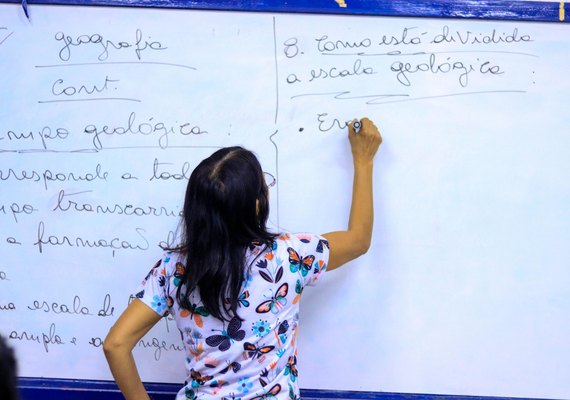 geografia
Cont.
geológica :
a todo
transcorri
a formação d
escala de
ampla e
8. Como está dividida
a escala geológica :
• Era